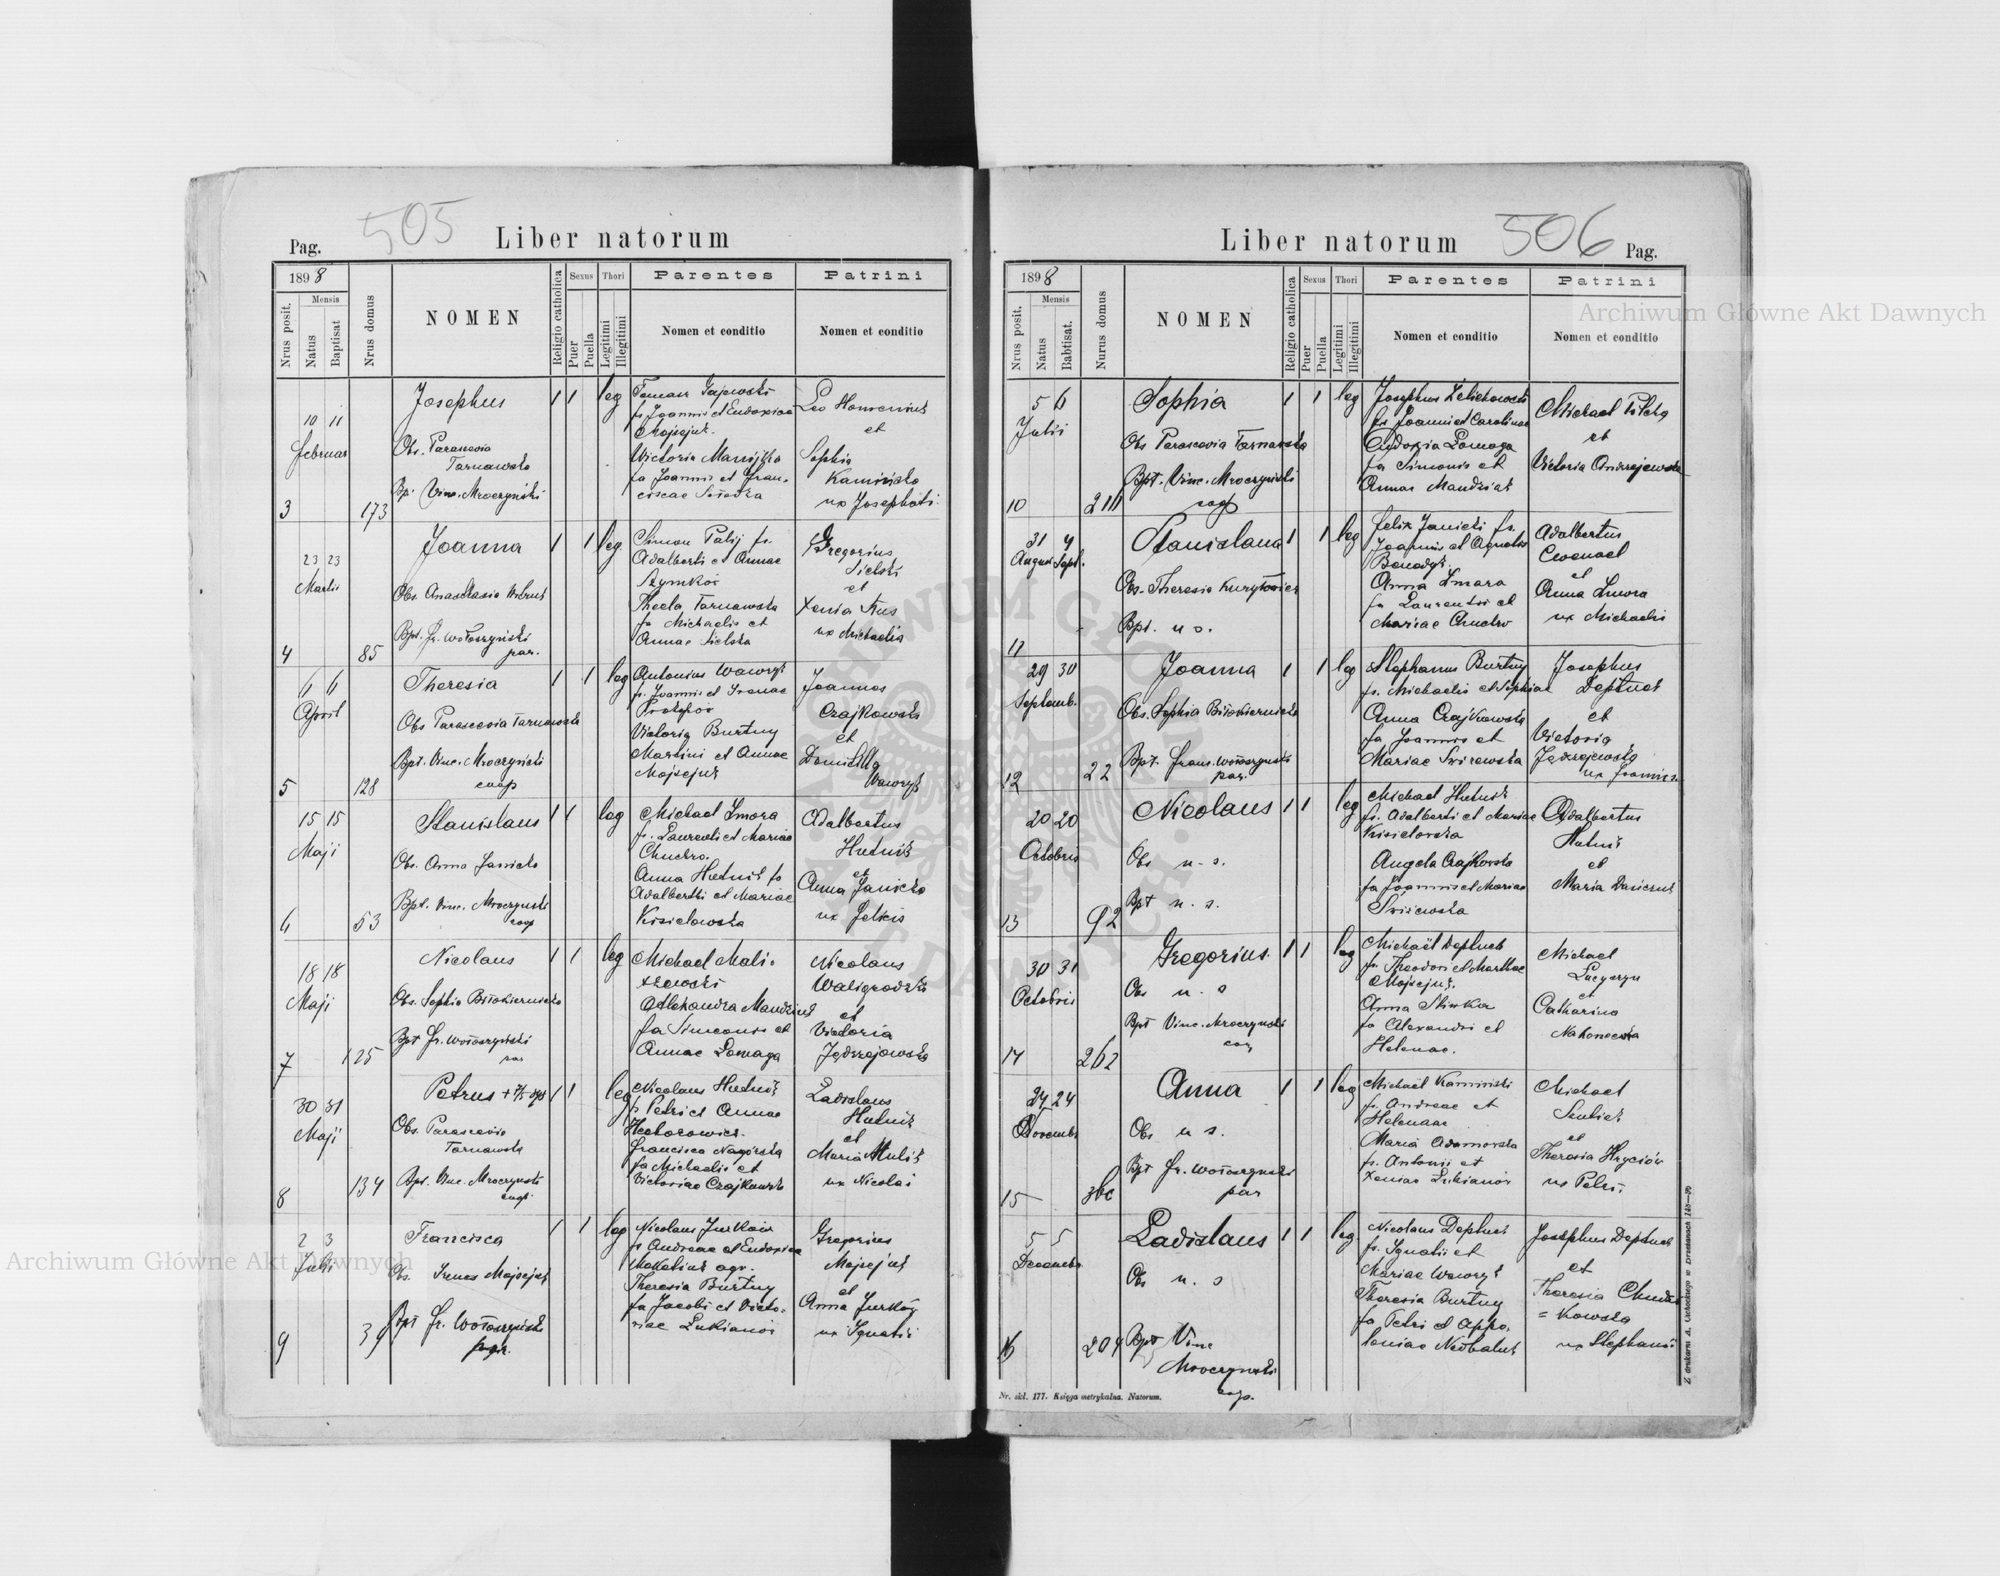 505
Pag.
Liber natorum
1898
Nrus posit.
Mensis
Natus
Baptisat
Nrus domus
NOMEN
Religio catholica
Sexus
Puer
Puella
Thori
Legitimi
Illegitimi
Parentes
Nomen et conditio
Patrini
Nomen et conditio
3
10 11
Februar
173
Josephus
Obs. Parascevia
Tarnawska
Bp. Vinc. Mroczyński
1 1
leg
fs Joannis et Eudoxiae
Mojsejuk.
Victoria
fa Joannis et Fran-
ciscae
Leo
et
Sophia
Kamińska
ux Josephati
4
23 23
Martii
85
Joanna
Obs. Anastasia
Bpt. Fr. Wołoszyński
par.
1 1
leg.
Simon Palij fs.
Adalberti et Annae
Szymków
Thecla Tarnawska
fa Michaelis et
Annae Sielska
Gregorius
Sielski
et
Xenia Kus
ux Michaelis
5
6 6
April
128
Theresia
Obs Parascevia Tarnawska
Bpt. Vinc. Mroczyński
coop
1 1
leg
Antonius Wawryk
fs. Joannis et Irenae
Prokopów
Victoria Burtny
Martini et Annae
Mojsejuk
Joannes
Czajkowski
et
Domicella
Wawryk
6
15 15
Maji
53
Stanislaus
Obs. Anna Janicka
Bpt. Vinc. Mroczyński
coop
1 1
leg
Michael Zmora
fs. Laurentii et Mariae
Chuchro.
Anna Hutnik fa
Adalberti et Mariae
Kisielowska
Adalbertus
Hutnik
et
Anna Janicka
ux Felicis
7
18 18
Maji
125
Nicolaus
Obs. Sophia Biłokiernicka
Bpt Fr. Wołoszyński
par
1 1
leg
Michael Mali-
szewski
Alexandra Mandziuk
fa Simeonis et
Annae Łomaga
Nicolaus
Waligrodzki
et
Victoria
Jędrzejowska
8
30 31
Maji
134
Petrus
Obs. Parascevia
Tarnawska
Bpt. Vinc. Mroczyński
coop.
1 1
leg
Nicolaus Hutnik
fs Petri et Annae
Hectorowicz.
Francisca Nagórska
fa Michaelis et
Victoriae Czajkowska
Ladislaus
Hutnik
et
Maria Hulik
ux Nicolai
9
2 3
Julii
39
Francisca
Obs. Irenes Mojsejuk
Bpt Fr. Wołoszyński
1 1
leg
Nicolaus Jurków
fs Andreae et Eudoxiae
agr.
Theresia Burtny
fa Jacobi et Victo-
riae Łukianów
Gregorius
Mojsejuk
et
Anna Jurków
ux Ignatii
Liber natorum
506
Pag.
1898
Nrus posit.
Mensis
Natus
Babtisat.
Nurus domus
NOMEN
Religio catholica
Sexus
Puer
Puella
Thori
Legitimi
Illegitimi
Parentes
Nomen et conditio
Patrini
Nomen et conditio
10
5 6
Julii
Sophia
Obs Parascevia Tarnawska
Bpt. Vinc. Mroczyński
coop
1 1
leg
Josephus Zelichowski
fs Joannis et Carolinae
Eudoxia Łomaga
fa Simonis et
Annae Mandziuk
Michael Pilch
et
Victoria Ondrzejewska
11
31 4
August Sept.
Stanislaus
Obs. Theresia Kuryłowicz
Bpt. u s.
1 1
leg
Felix Janicki fs.
Joannis et Agnetis
Benedyk.
Anna Zmora
fa Laurentii et
Mariae Chuchro
Adalbertus
et
Anna Zmora
ux Michaelis
12
29 30
Septemb.
22
Joanna
Obs. Sophia Biłokiernicka
Bpt. Franc. Wołoszyński
par.
1 1
leg
Stephanus Burtny
fs. Michaelis et Sophiae
Anna Czajkowska
fa Joannis et
Mariae Sviżewska
Josephus
Deptuch
et
Victoria
Jędrzejewska
ux Joannis
13
20 20
Octobris
92
Nicolaus
Obs u. s.
Bpt u. s.
1 1
leg
Michael Hutnik
fs. Adalberti et Mariae
Kisielowska
Angela Czajkowska
fa Joannis et Mariae
Sviżewska
Adalbertus
Hutnik
et
Maria
14
30 31
Octobris
262
Gregorius.
Obs u. s
Bpt Vinc. Mroczyński
coop
1 1
leg
Michaël Deptuch
fs. Theodori et Marthae
Mojsejuk.
Anna
fa Alexandri et
Helenae.
Michael
et
Catharina
Nakoneczna
15
24 24
Novembr
Anna
Obs u s.
Bpt Fr. Wołoszyński
par
1 1
leg
Michaël Kamiński
fs. Andreae et
Helenae
Maria Adamowska
fa. Antonii et
Xeniae Łukianów
Michael
et
Theresia Hryciów
ux Petri.
16
5 5
Decembr
204
Ladislaus
Obs u. s
Bpt Vinc
Mroczyński
coop.
1 1
leg.
Nicolaus Deptuch
fs. Ignatii et
Mariae Wawryk
Theresia Burtny
fa Petri et Appo-
loniae Niedbaluk
Josephus Deptuch
et
Theresia
= kowska
ux Stephani
Nr. skl. 177. Księga metrykalna. Natorum.
Archiwum Główne Akt Dawnych
Archiwum Główne Akt Dawnych